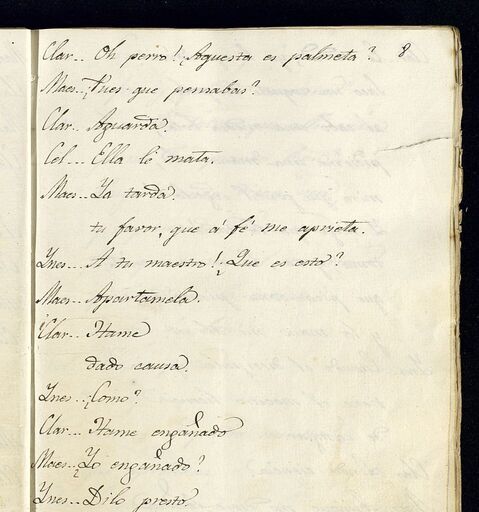 Clar.. Oh perro! ¿Aquesta es palmeta? 8
Maes.. ¿Pues que pensabas?
Clar.. Aguarda.
Cel... Ella le mata.
Maes... Ya tarda
tu favor, que á fé me aprieta.
Ynes... A tu maestro! ¿Que es esto?
Maes.. Apartamela.
Clar... Hame
dado causa.
Ynes... ¿Como?
Clar... Hame engañado
Maes.. ¿Yo engañado?
Ynes... Dilo presto.